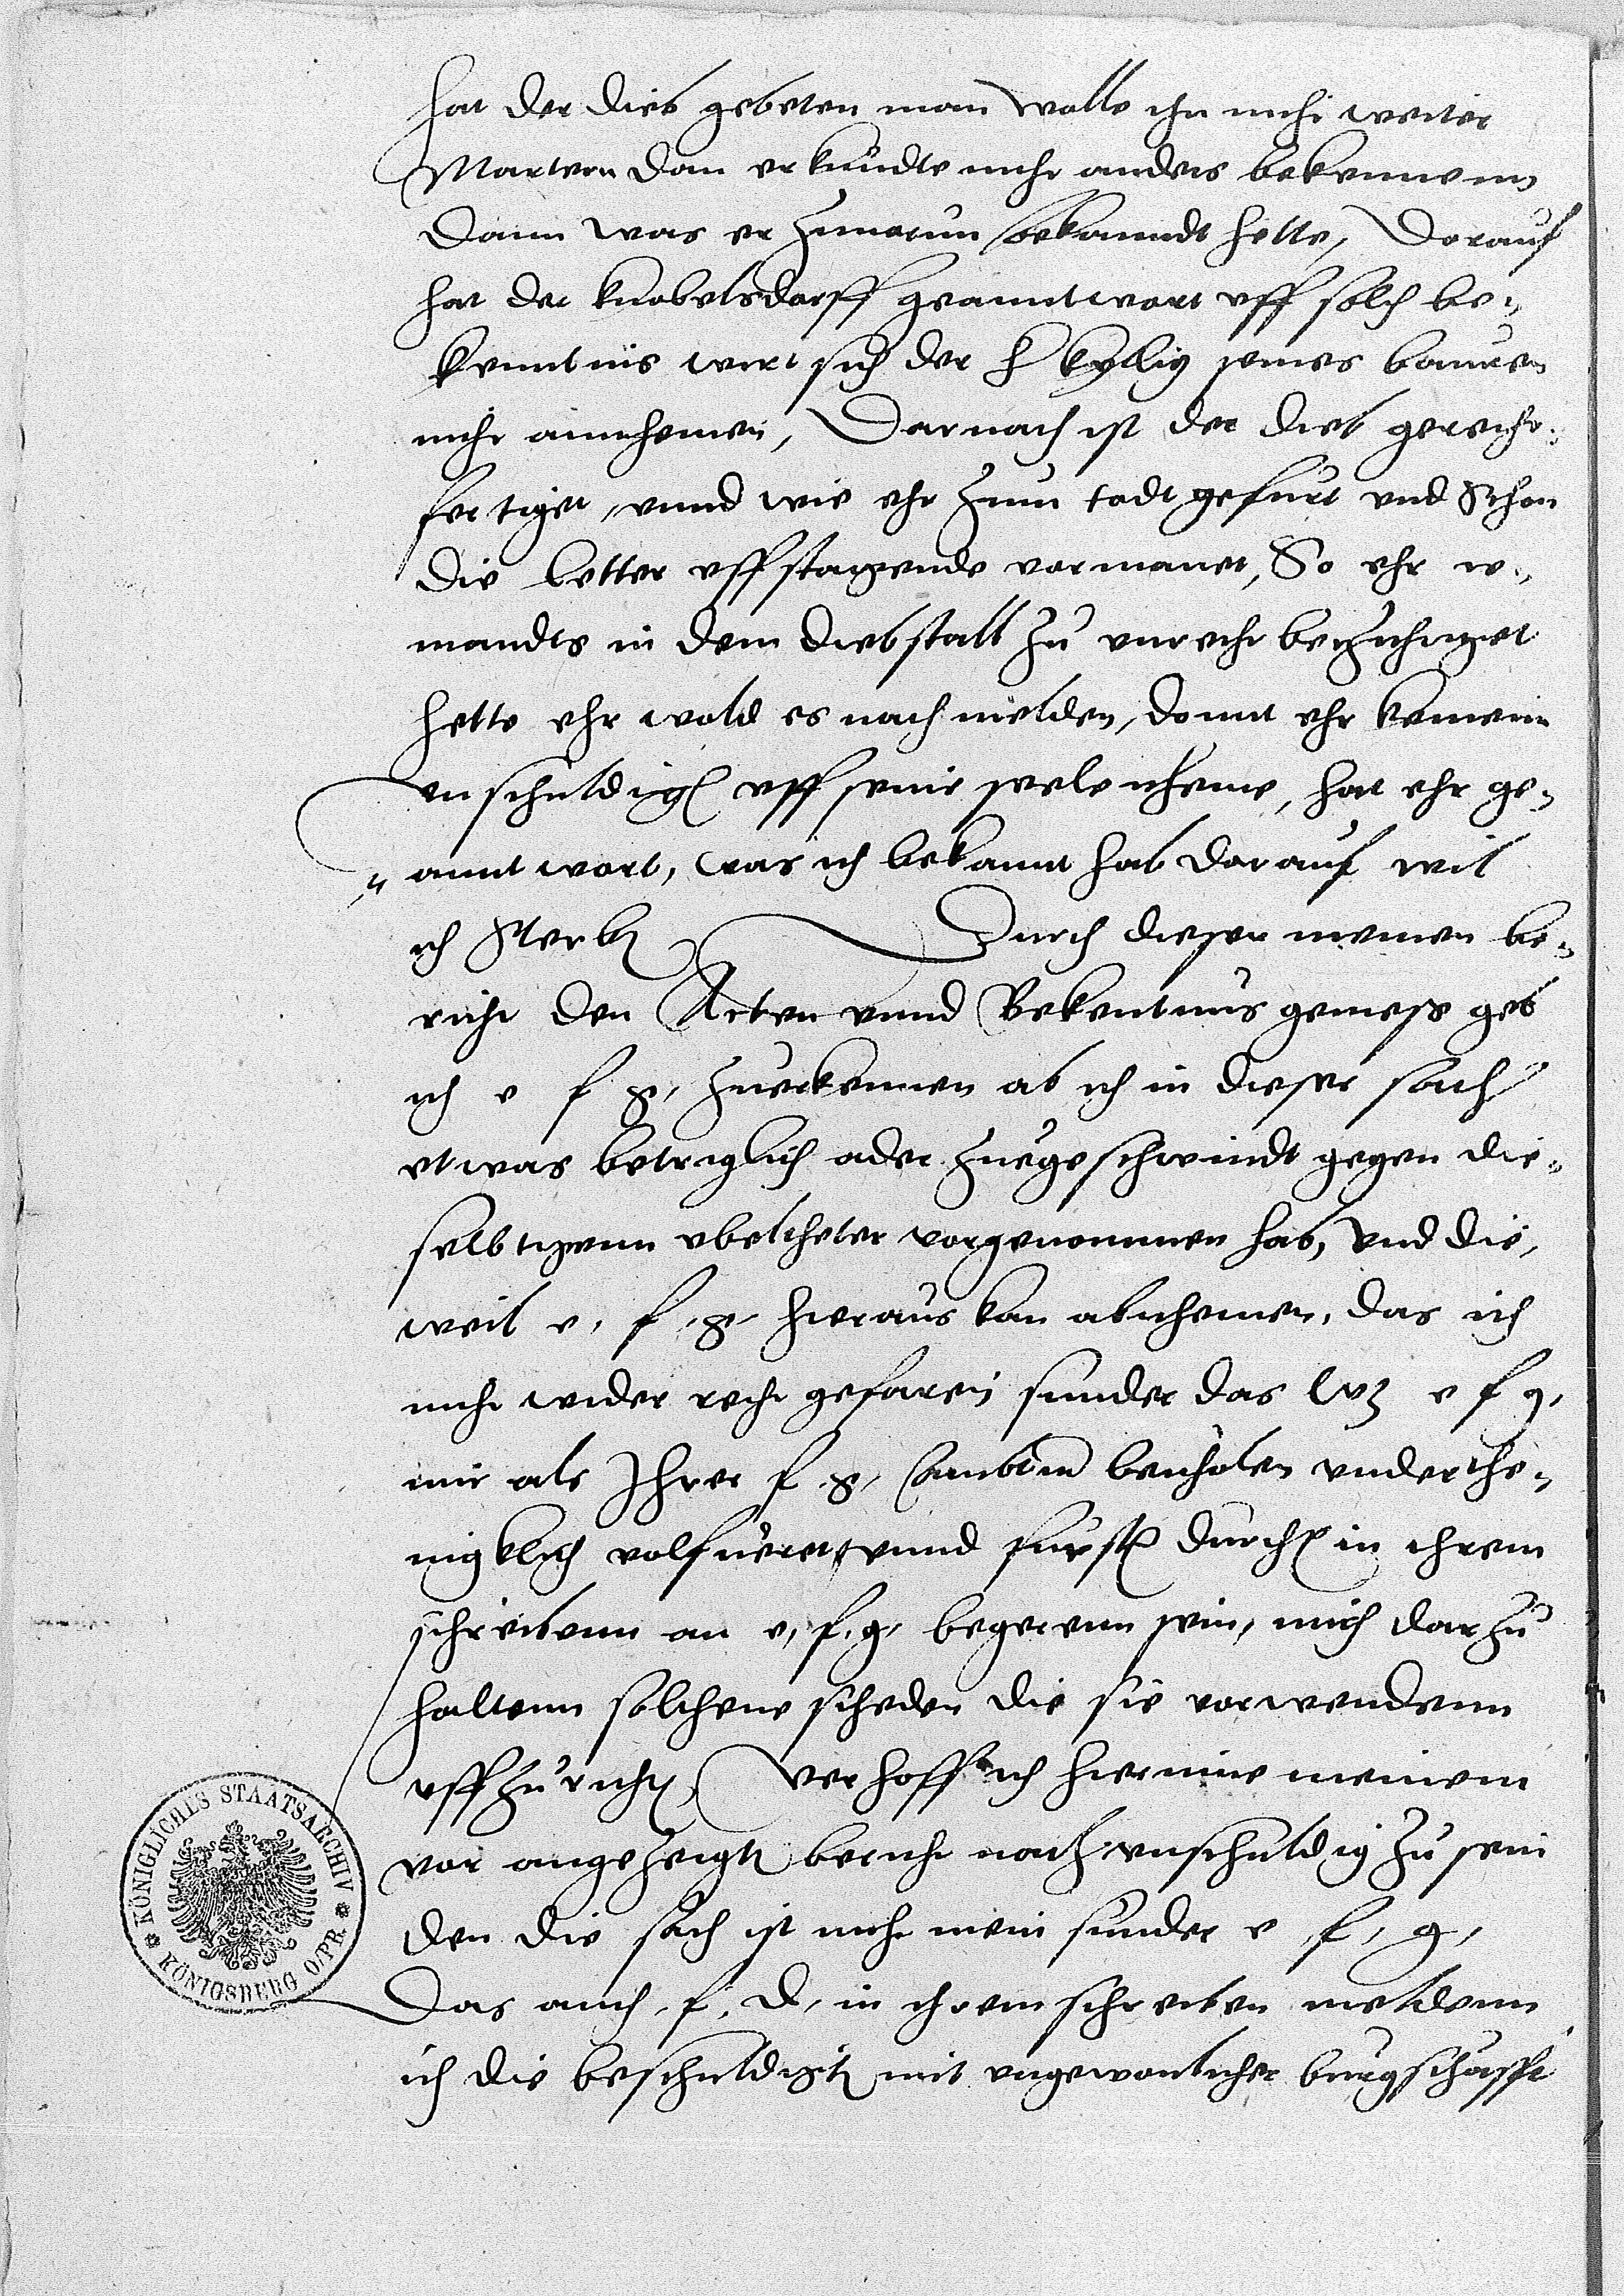 hat der dieb gebeten man wolle ihn nicht weiter
Martern dan er kundte nicht anders bekennenn
dann was er zuuorun bekanndt hette, Dorauf
hat der knobelsdorff geanntwort vff solch be¬
kenntnis wirt sich der h kyllig seines bauren
nicht annhemen, Darnach ist der dieb gerecht¬
fertiget, vnnd wie ehr zum todt gefurt vnd Schon
die letter vffstagende vormanet, So ehr ie¬
mandts in dem diebstall zu vnrecht bezichtiget
hette ehr wold es noch melden, domit ehr keinenn
vnschuldigen vff seine seele nheme, hat ehr ge¬
anntwort, was ich bekannt hab dorauf wil
ich Sterben Durch diesen meinen be¬
richt den Acten vnnd Bekentnus gemess geb
ich e f g, zuerkennen ab ich in dieser sach
etwas betriglich ader zuegeschwindt gegen die¬
selbtigenn vbeltheter vorgenommen hab, Vnd die,
weil e, f, g, hieraus kan abnhemen, das ich
nicht wider recht gefaren sunder das e f g,
mir als Ihrer f g, ambtman beuholen vnderthe¬
nigklich volfueret, vnnd furstl durchl in ihrem
schreibenn an e, f, g, begerenn sein, mich darzu
haltenn solchene scheden die sie vorwendenn
vffzurichten, Verhoff ich hierinne meinem
vor angezeigten bericht nach vnschuldig zu sein
den die sach ist nicht mein sunder e f, g,
Das auch, f, d, in ihrem schreiben meldenn
ich die beschuldigten mit vngewonlicher burgschafft
KÖNIGLICHES STAATSARCHIV
KÖNIGSBERG O/PR.